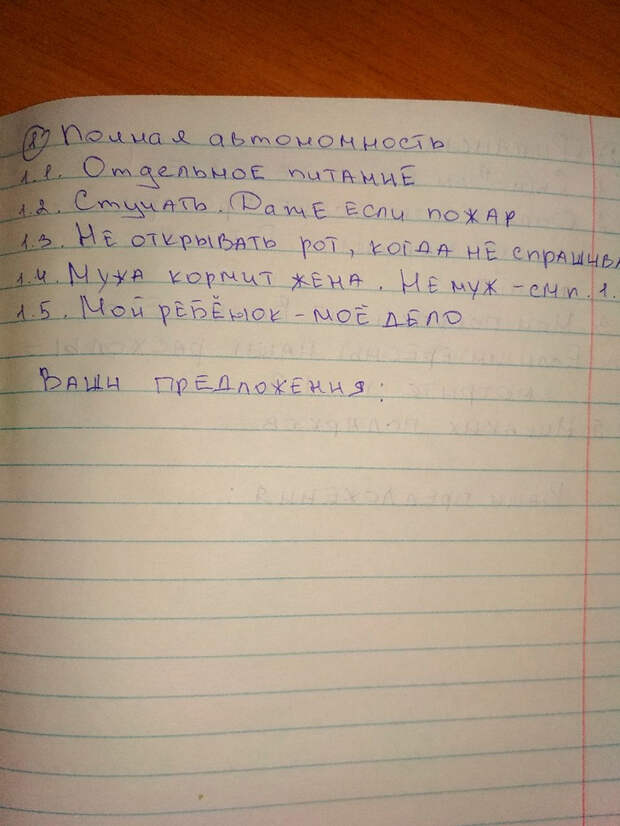 8) Полная автономность
1.1. Отдельное питание
1.2. Стучать. Даже если пожар
1.3. Не открывать рот, когда не спрашива
1.4. Мужа кормит жена. Не муж - см п. 1.
1.5. Мой ребёнок - моё дело
Ваши предложения: